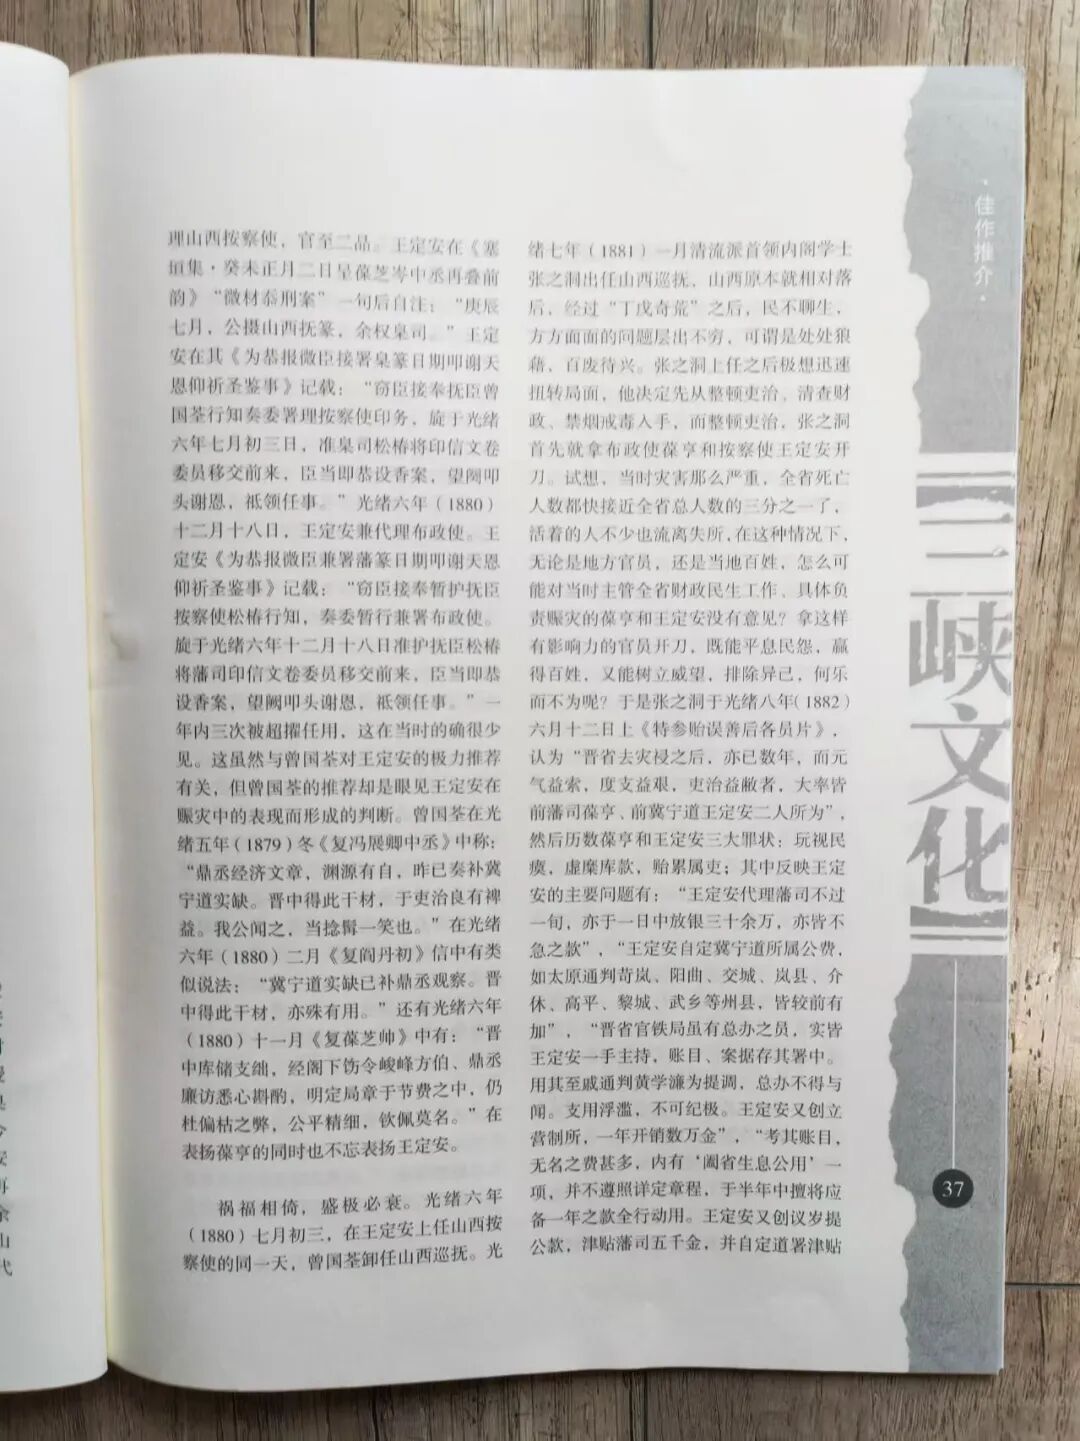 理山西按察使，官至二品。王定安在《塞
垣集·癸未正月二日呈葆芝岑中丞再叠前
韵》“微材忝刑案”一句后自注：“庚辰
七月，公摄山西抚篆，余权臬司。”王定
安在其《为恭报微臣接署臬篆日期叩谢天
恩仰祈圣鉴事》记载：“窃臣接奉抚臣曾
国荃行知奏委署理按察使印务，旋于光绪
六年七月初三日，准臬司松椿将印信文卷
委员移交前来，臣当即恭设香案，望阙叩
头谢恩，祗领任事。”光绪六年（1880）
十二月十八日，王定安兼代理布政使。王
定安《为恭报微臣兼署藩篆日期叩谢天恩
仰祈圣鉴事》记载：“窃臣接奉暂护抚臣
按察使松椿行知，奏委暂行兼署布政使。
旋于光绪六年十二月十八日准护抚臣松椿
将藩司印信文卷委员移交前来，臣当即恭
设香案，望阙叩头谢恩，祗领任事。”一
年内三次被超擢任用，这在当时的确很少
见。这虽然与曾国荃对王定安的极力推荐
有关，但曾国荃的推荐却是眼见王定安在
赈灾中的表现而形成的判断。曾国荃在光
绪五年（1879）冬《复冯展卿中丞》中称：
“鼎丞经济文章，渊源有自，昨已奏补冀
宁道实缺。晋中得此干材，于吏治良有裨
益。我公闻之，当捻髯一笑也。”在光绪
六年（1880）二月《复阎丹初》信中有类
似说法：“冀宁道实缺已补鼎丞观察。晋
中得此干材，亦殊有用。”还有光绪六年
（1880）十一月《复葆芝帅》中有：“晋
中库储支绌，经阁下饬令峻峰方伯、鼎丞
廉访悉心斟酌，明定局章于节费之中，仍
杜偏枯之弊，公平精细，钦佩莫名。”在
表扬葆亨的同时也不忘表扬王定安。
祸福相倚，盛极必衰。光绪六年
（1880）七月初三，在王定安上任山西按
察使的同一天，曾国荃卸任山西巡抚。光
绪七年（1881）一月清流派首领内阁学士
张之洞出任山西巡抚，山西原本就相对落
后，经过“丁戊奇荒”之后，民不聊生，
方方面面的问题层出不穷，可谓是处处狼
藉，百废待兴。张之洞上任之后极想迅速
扭转局面，他决定先从整顿吏治，清查财
政、禁烟戒毒入手，而整顿吏治，张之洞
首先就拿布政使葆亨和按察使王定安开
刀。试想，当时灾害那么严重，全省死亡
人数都快接近全省总人数的三分之一了，
活着的人不少也流离失所，在这种情况下，
无论是地方官员，还是当地百姓，怎么可
能对当时主管全省财政民生工作、具体负
责赈灾的葆亨和王定安没有意见？拿这样
有影响力的官员开刀，既能平息民怨，赢
得百姓，又能树立威望，排除异己，何乐
而不为呢？于是张之洞于光绪八年（1882）
六月十二日上《特参贻误善后各员片》，
认为“晋省去灾祲之后，亦已数年，而元
气益索，度支益艰，吏治益敝者，大率皆
前藩司葆亨、前冀宁道王定安二人所为”，
然后历数葆亨和王定安三大罪状：玩视民
瘼，虚糜库款，贻累属吏；其中反映王定
安的主要问题有：“王定安代理藩司不过
一旬，亦于一日中放银三十余万，亦皆不
急之款”，“王定安自定冀宁道所属公费，
如太原通判苛岚、阳曲、交城、岚县、介
休、高平、黎城、武乡等州县，皆较前有
加”，“晋省官铁局虽有总办之员，实皆
王定安一手主持，账目、案据存其署中。
用其至戚通判黄学濂为提调，总办不得与
闻。支用浮滥，不可纪极。王定安又创立
营制所，一年开销数万金”，“考其账目，
无名之费甚多，内有‘阖省生息公用’一
项，并不遵照详定章程，于半年中擅将应
备一年之款全行动用。王定安又创议岁提
公款，津贴藩司五千金，并自定道署津贴
·佳作推介·
三峡文化
37